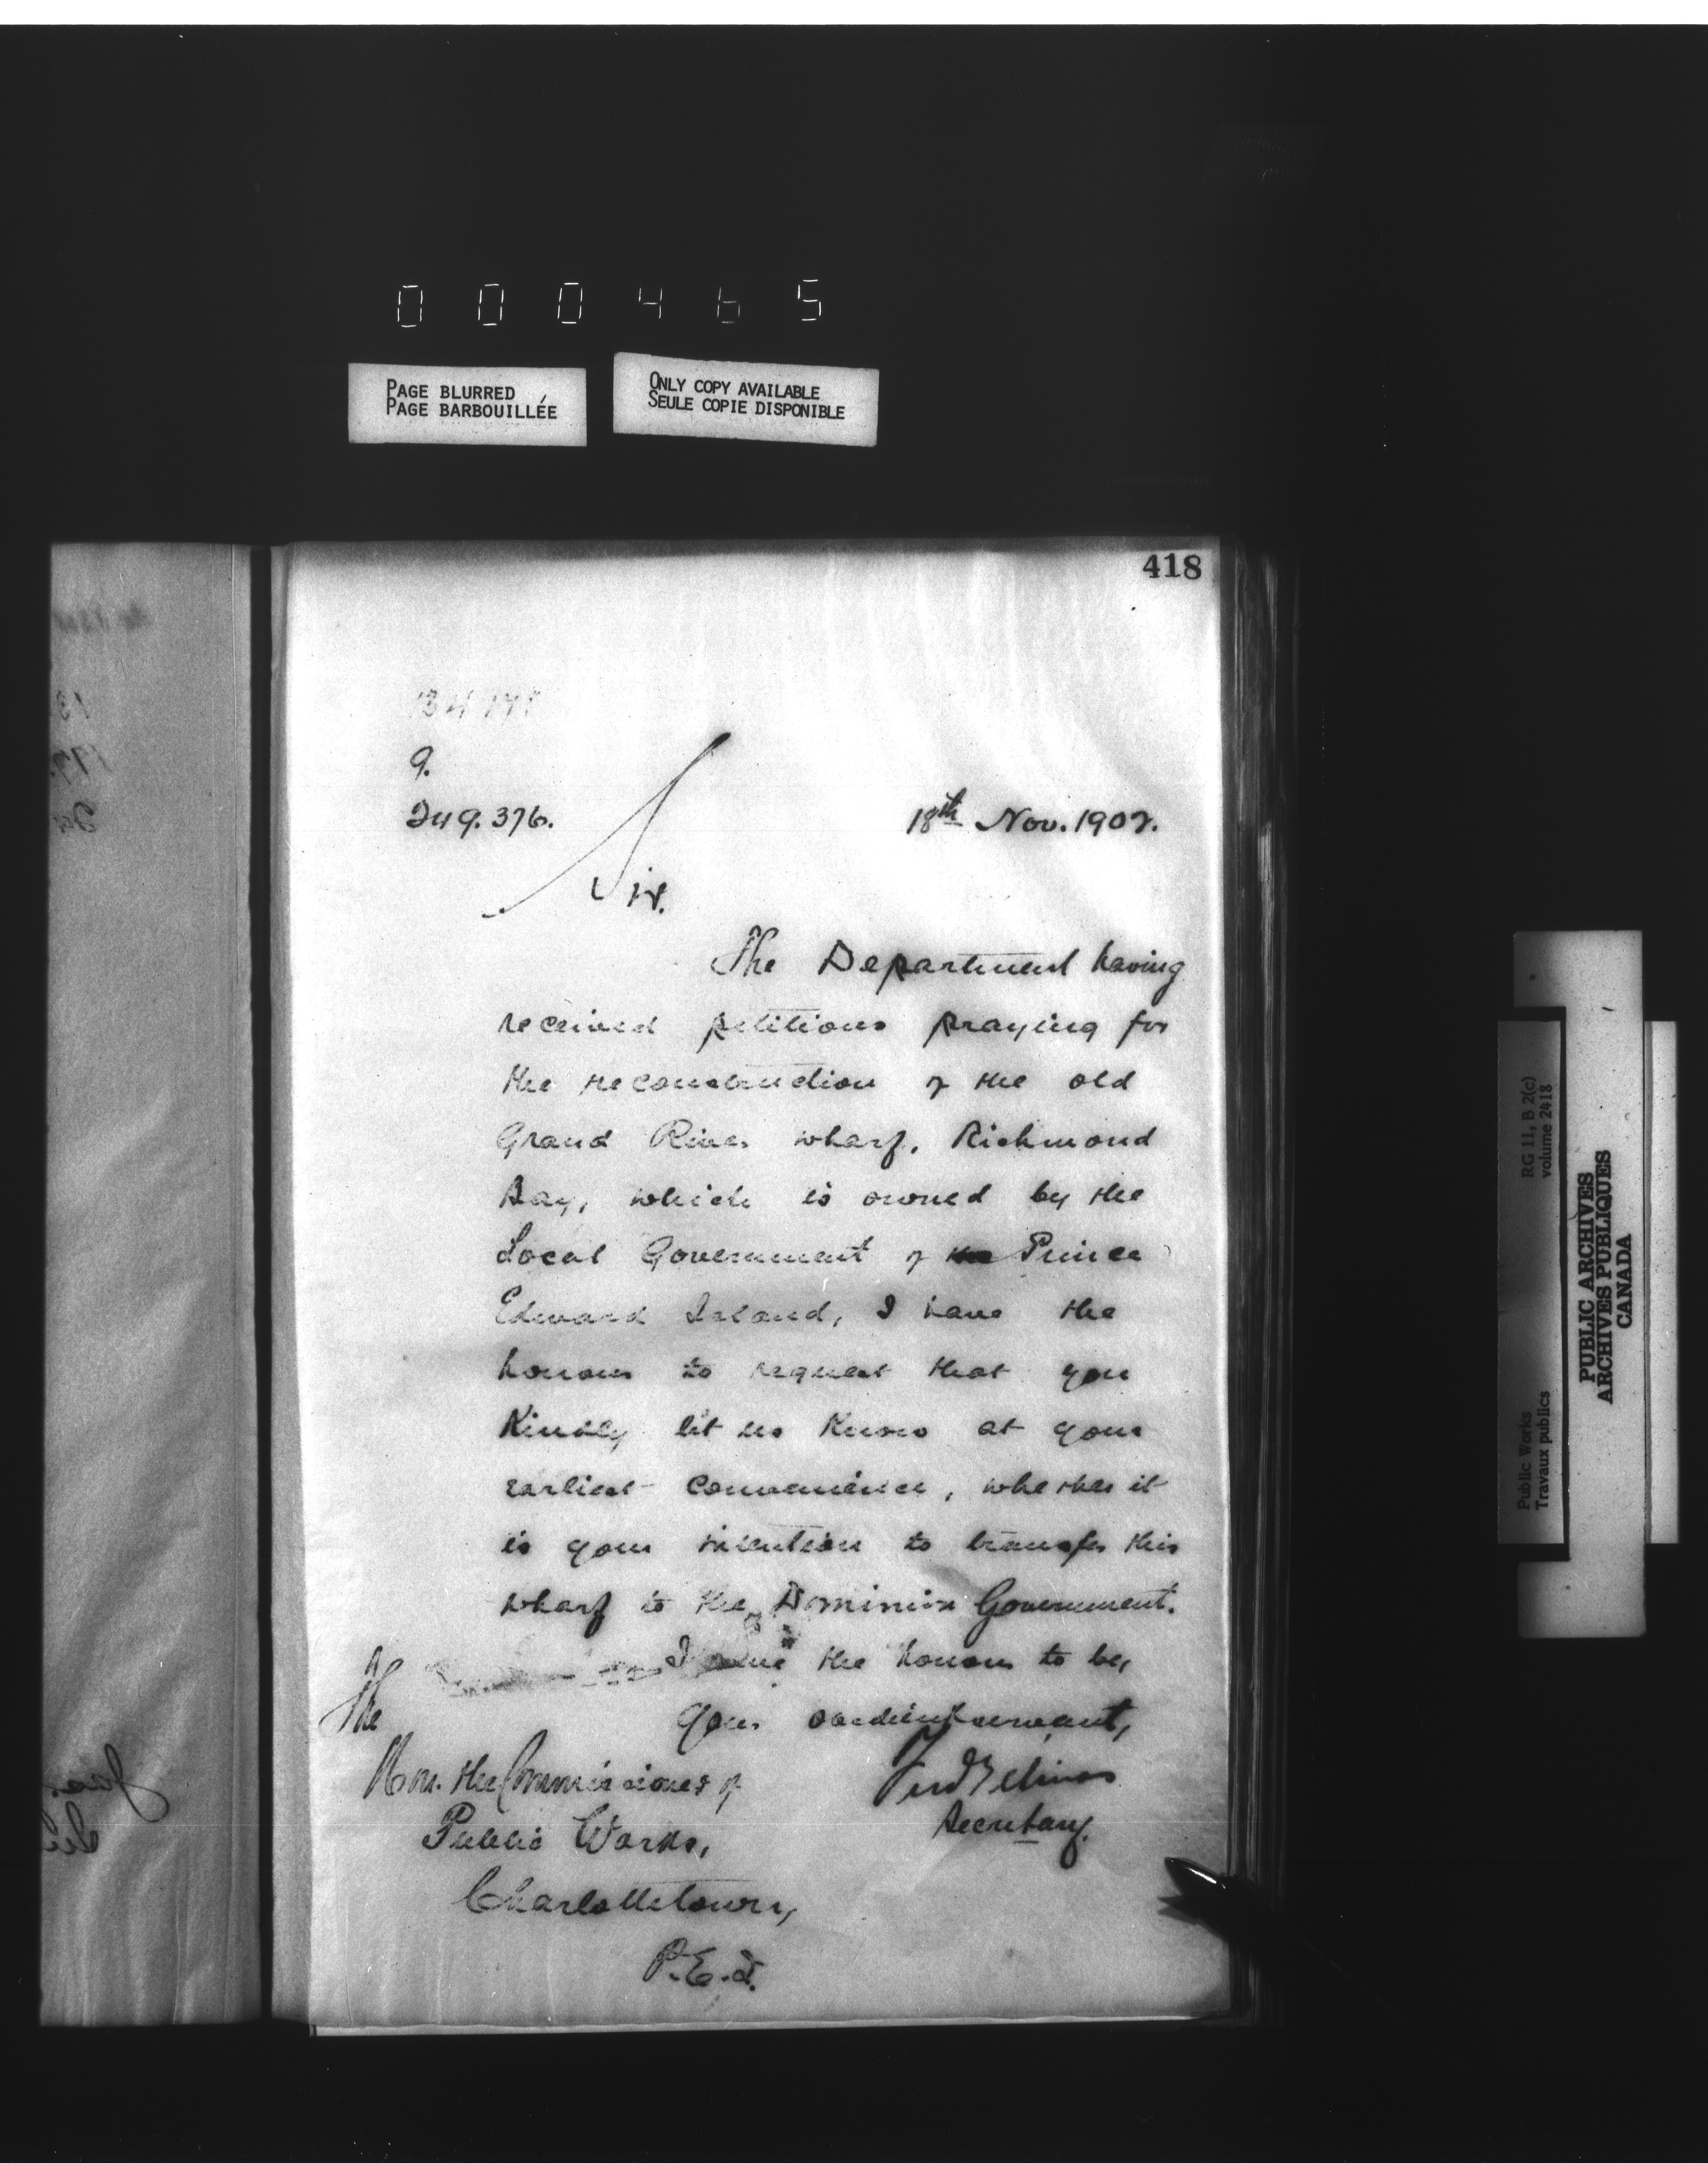 000465
PAGE BLURRED
PAGE BARBOUILLÉE
ONLY COPY AVAILABLE
SEULE COPIE DISPONIBLE
418
9.
249.376.
18th Nov. 1902.
Sir.
The Department having
received petitions praying for
the reconstruction of the old
Grand River wharf, Richmond
Bay, which is owned by the
Local Government of the Prince
Edward Island, I have the
honour to request that you
Kindly let us Know at your
earliest convenience, whether it
is your intention to transfer this
wharf to the Dominion Government.
I have the honour to be,
Your obedient servant,
Secretary.
The
Hon. the Commissioner of
Public Works,
Charlottetown,
P.E.I.
RG 11, B 2(c)
volume 2418
Public Works
Travaux publics
PUBLIC ARCHIVES
ARCHIVES PUBLIQUES
CANADA